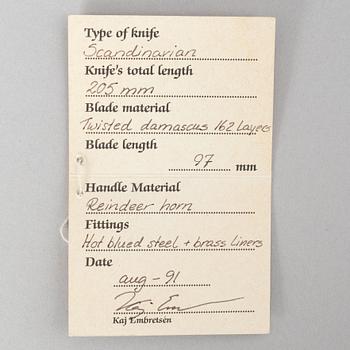 Type of knife
Scandinavian
Knife's total length
205 mm
Blade material
Twisted damascus 162 Layers
Blade length
97 mm
Handle Material
Reindeer horn
Fittings
Hot blued steel + brass liners
Date
aug - 91
Kaj Em
Kaj Embretsen